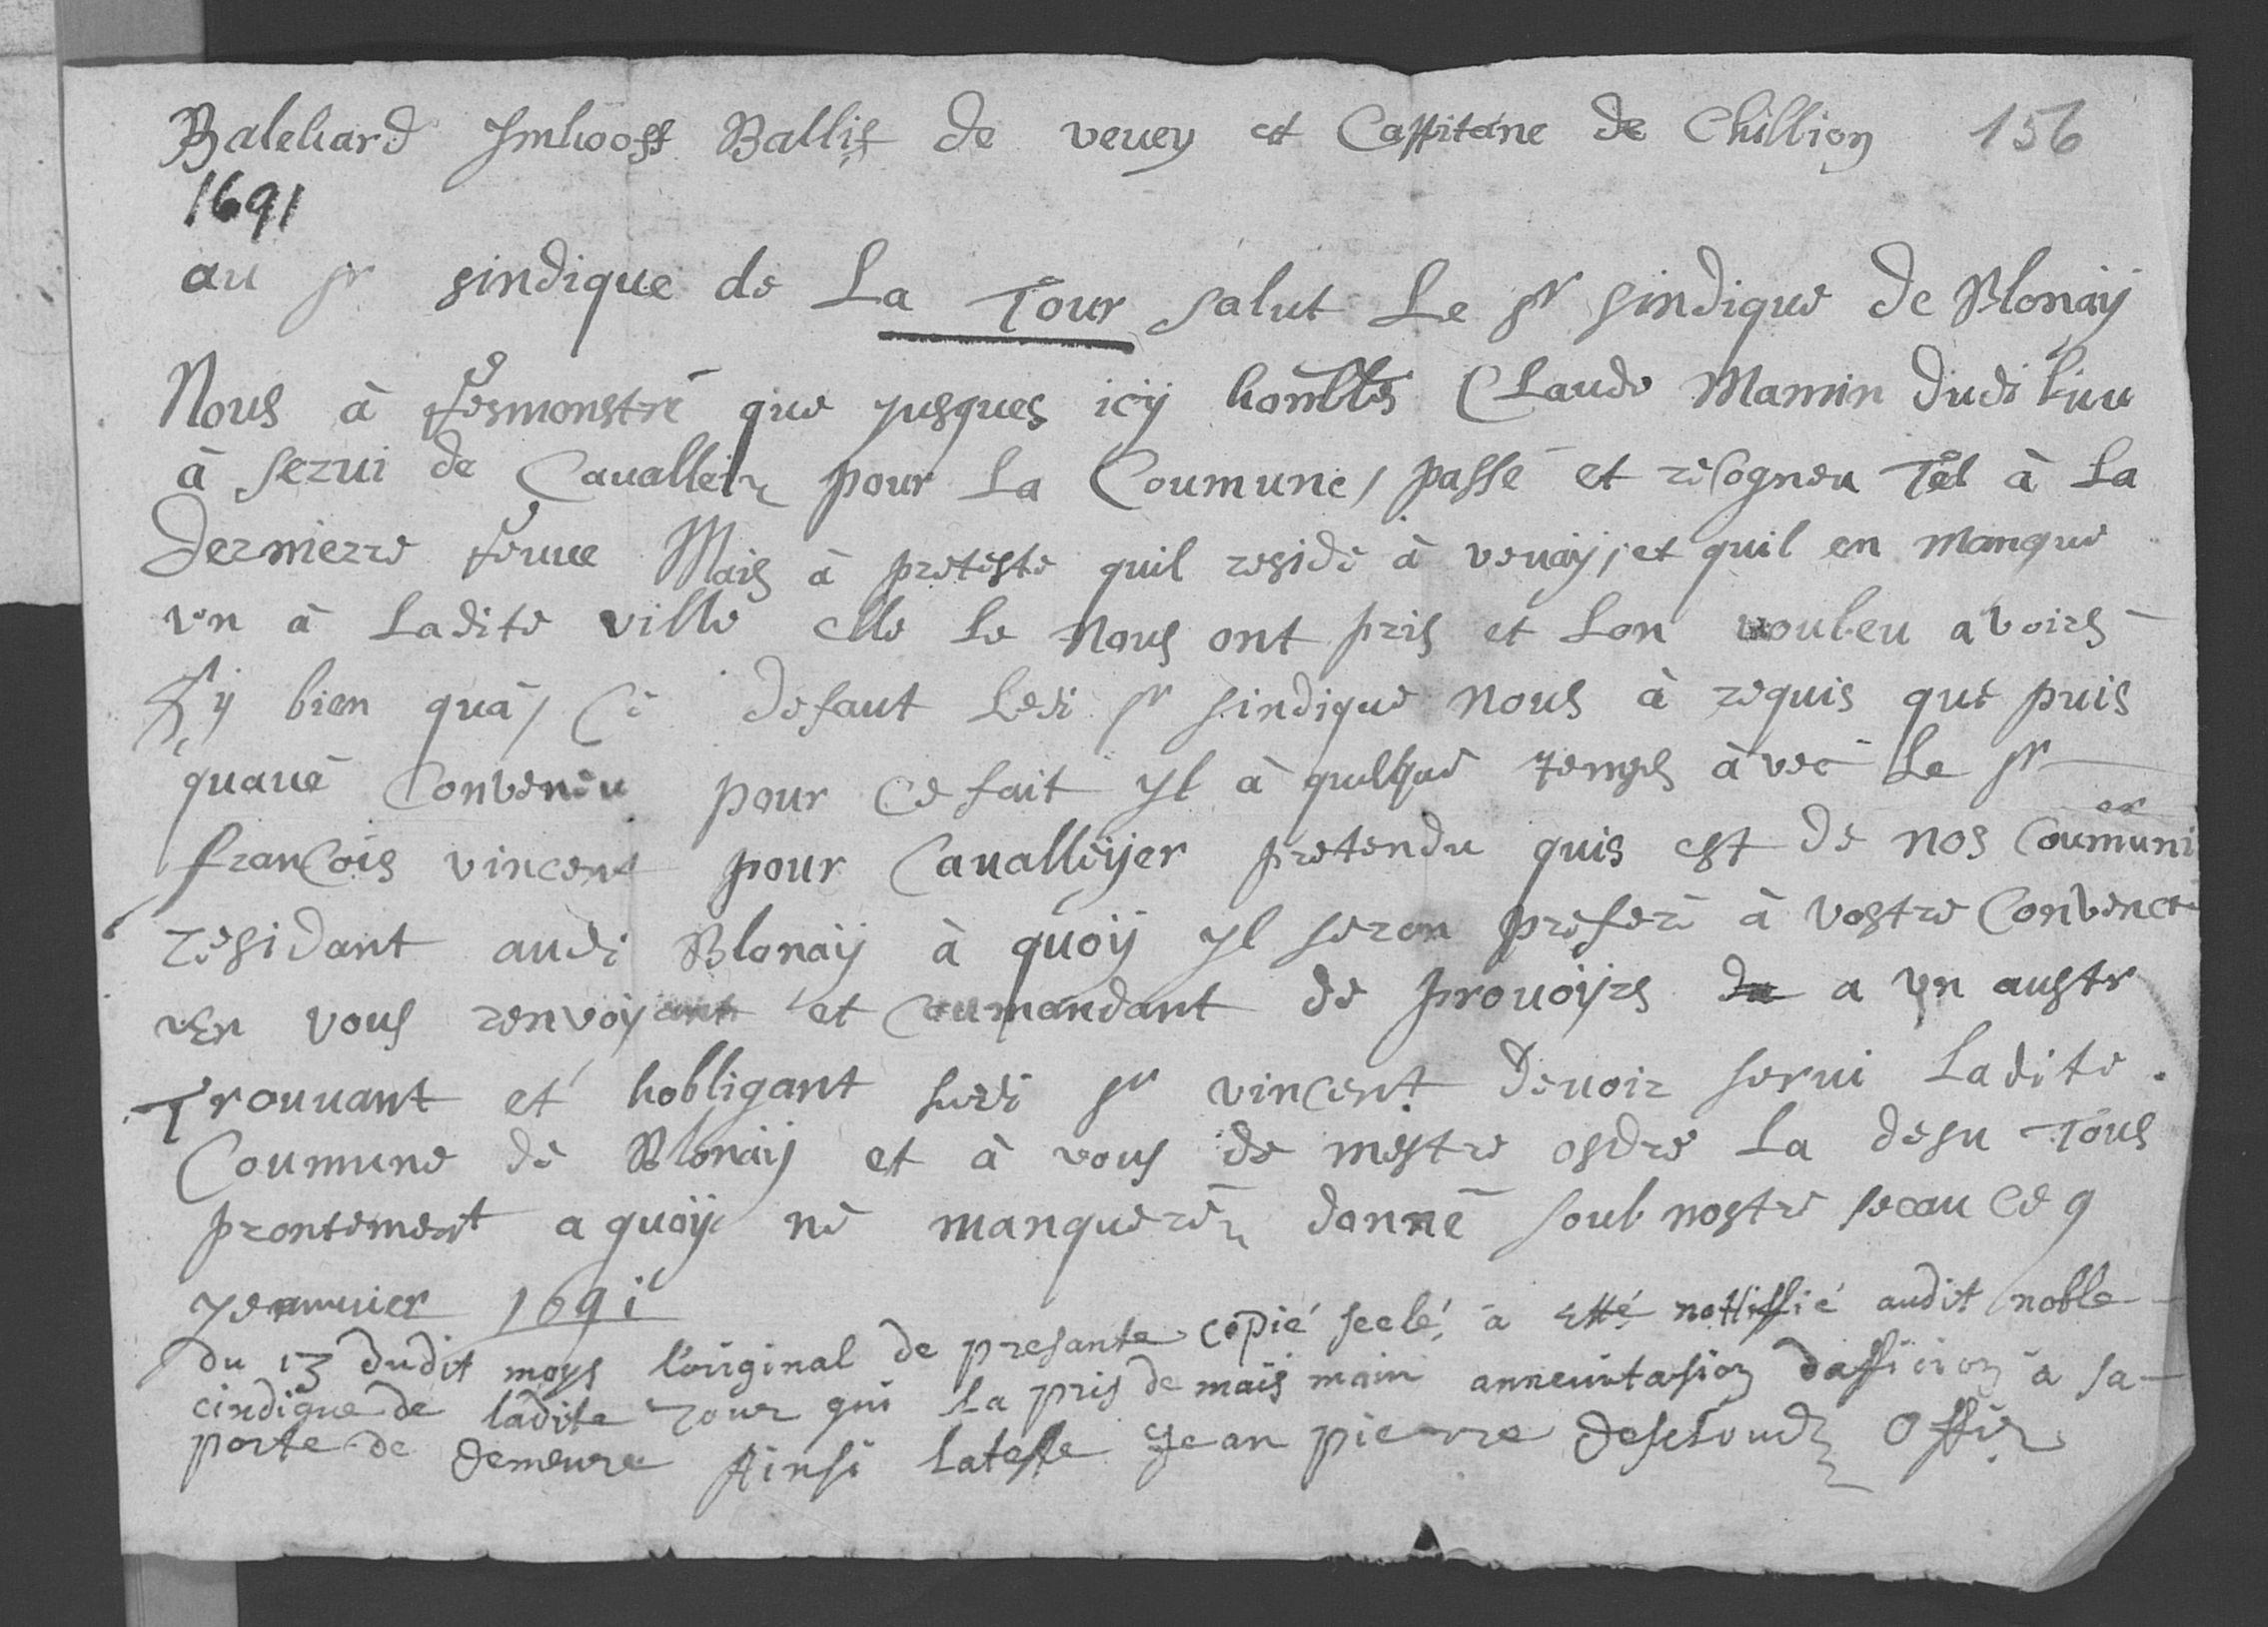 Balehard Imhooff Ballif de vevey et Cappitaine de Chillion 156
1691
au sr sindique de La Tour salut Le sr sindique de Blonaÿ
Nous à remonstré que jusques icÿ honnble Claude Mamin dudi lieu
à servi de Cavalleir pour La Coumune, passé et recogneu Tel à La
Dernierre revue Mais à preteste quil reside à vevaÿ, et quil en manque
un à Ladite ville elle Le Nous ont pris et Lon vouleu avoirs
Sÿ bien quà, Ce defaut Ledi sr sindique Nous à requis que puis
quavé Conveneu pour Ce fait yl à quelque temps àvec Le sr
franCois vincent pour Cavalleijer pretendu quis est de nos Coumunier
residant audi Blonaÿ à quoÿ yl seron preferé à vostre Convence
en vous renvoyant et Coumandant de provoÿre a un austr
Trouvant et hobligant sudi sr vincent devoir servi Ladite
Coumune de Blonaÿ et à vous de mestre osdre La desu Tous
prontement a quoÿ ne manqueréz donné soub nostre seeau Ce 9
jeanvier 1691
du 13 dudit moys l'original de presante copié seelé, à etté nottiffié audit noble
cindique de ladite Tour qui la pris de mais main à sa
porte de demeure Ainsi lateste Jean pierre Descloudz Offir